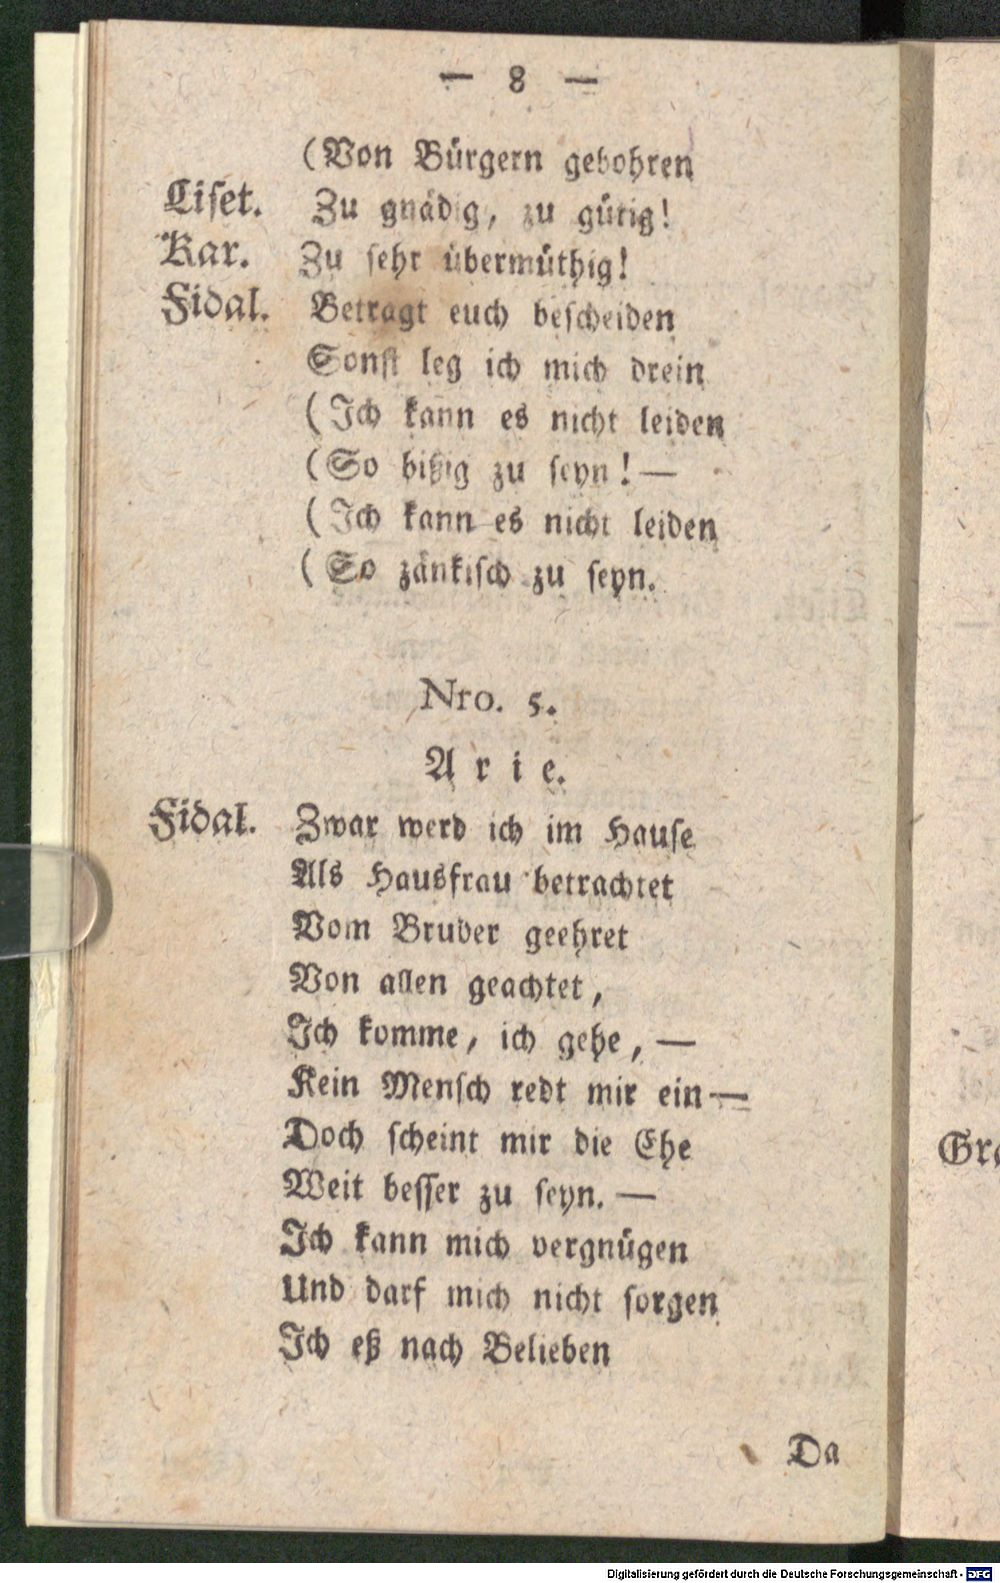 — 8 —
(Von Bürgern gebohren
Liset. Zu gnädig, zu gütig!
Kar. Zu sehr übermüthig!
Fidal. Betragt euch bescheiden
Sonst leg ich mich drein
(Ich kann es nicht leiden
(So bißig zu seyn! —
(Ich kann es nicht leiden
(So zänkisch zu seyn.
Nro. 5.
Arie.
Fidal. Zwar werd ich im Hause
Als Hausfrau betrachtet
Vom Bruder geehret
Von allen geachtet,
Ich komme, ich gehe, —
Kein Mensch redt mir ein —
Doch scheint mir die Ehe
Weit besser zu seyn. —
Ich kann mich vergnügen
Und darf mich nicht sorgen
Ich eß nach Belieben
Da
Gra
Digitalisierung gefördert durch die Deutsche Forschungsgemeinschaft - DFG